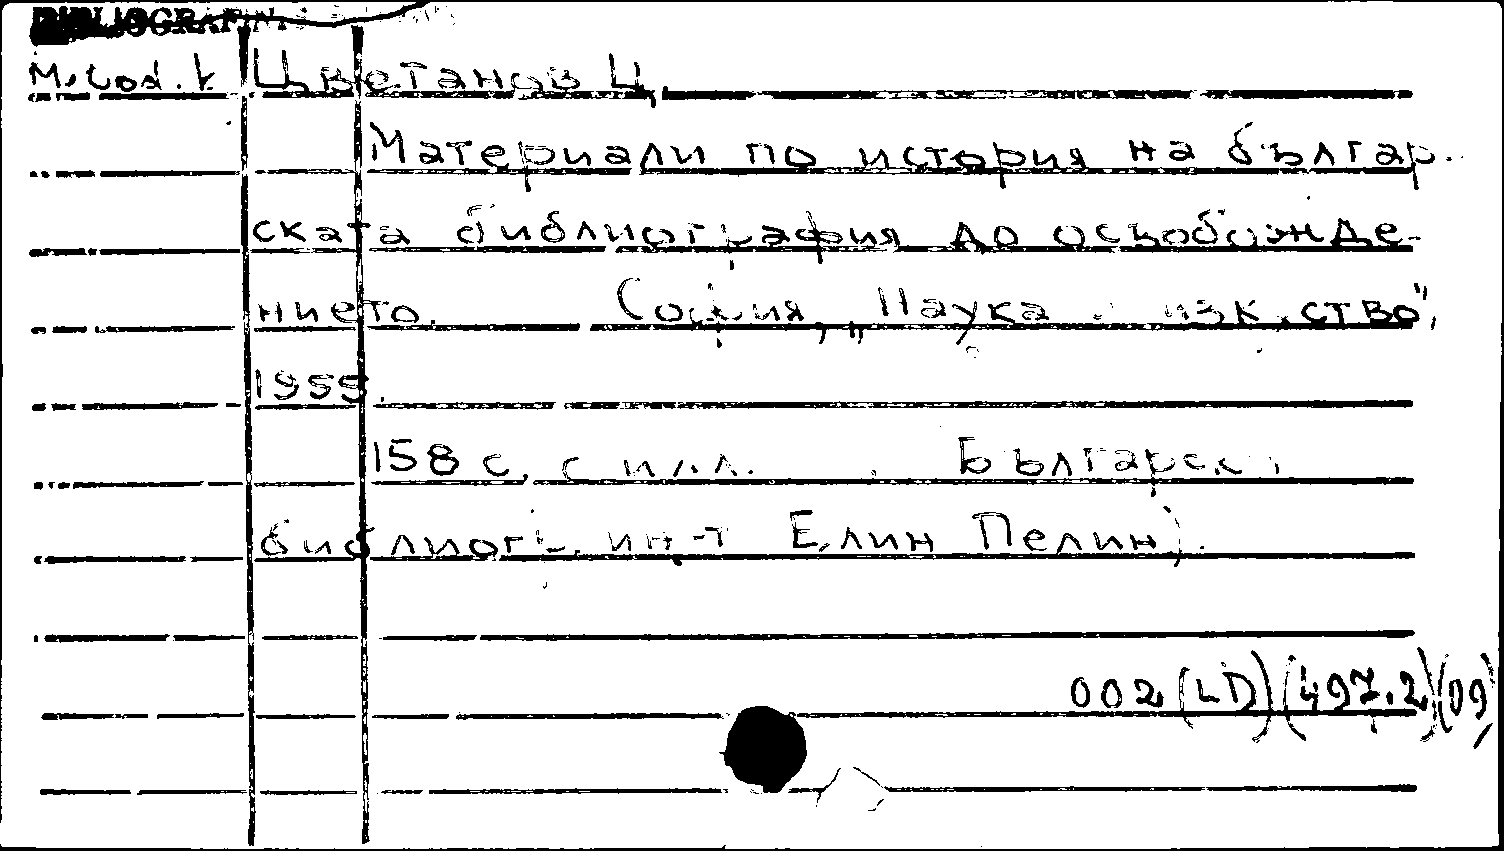 BIBLIOGRAFIN.
M. Cod. k Цветанов Ц.
Материали по история на българ-
ската библиография до освобожде-
нието. София, „Наука и изк.ство",
1955.
158 с. с илл. Българск
библиогр. ин-т Елин Пелин).
002(LD)(497.2)(09)